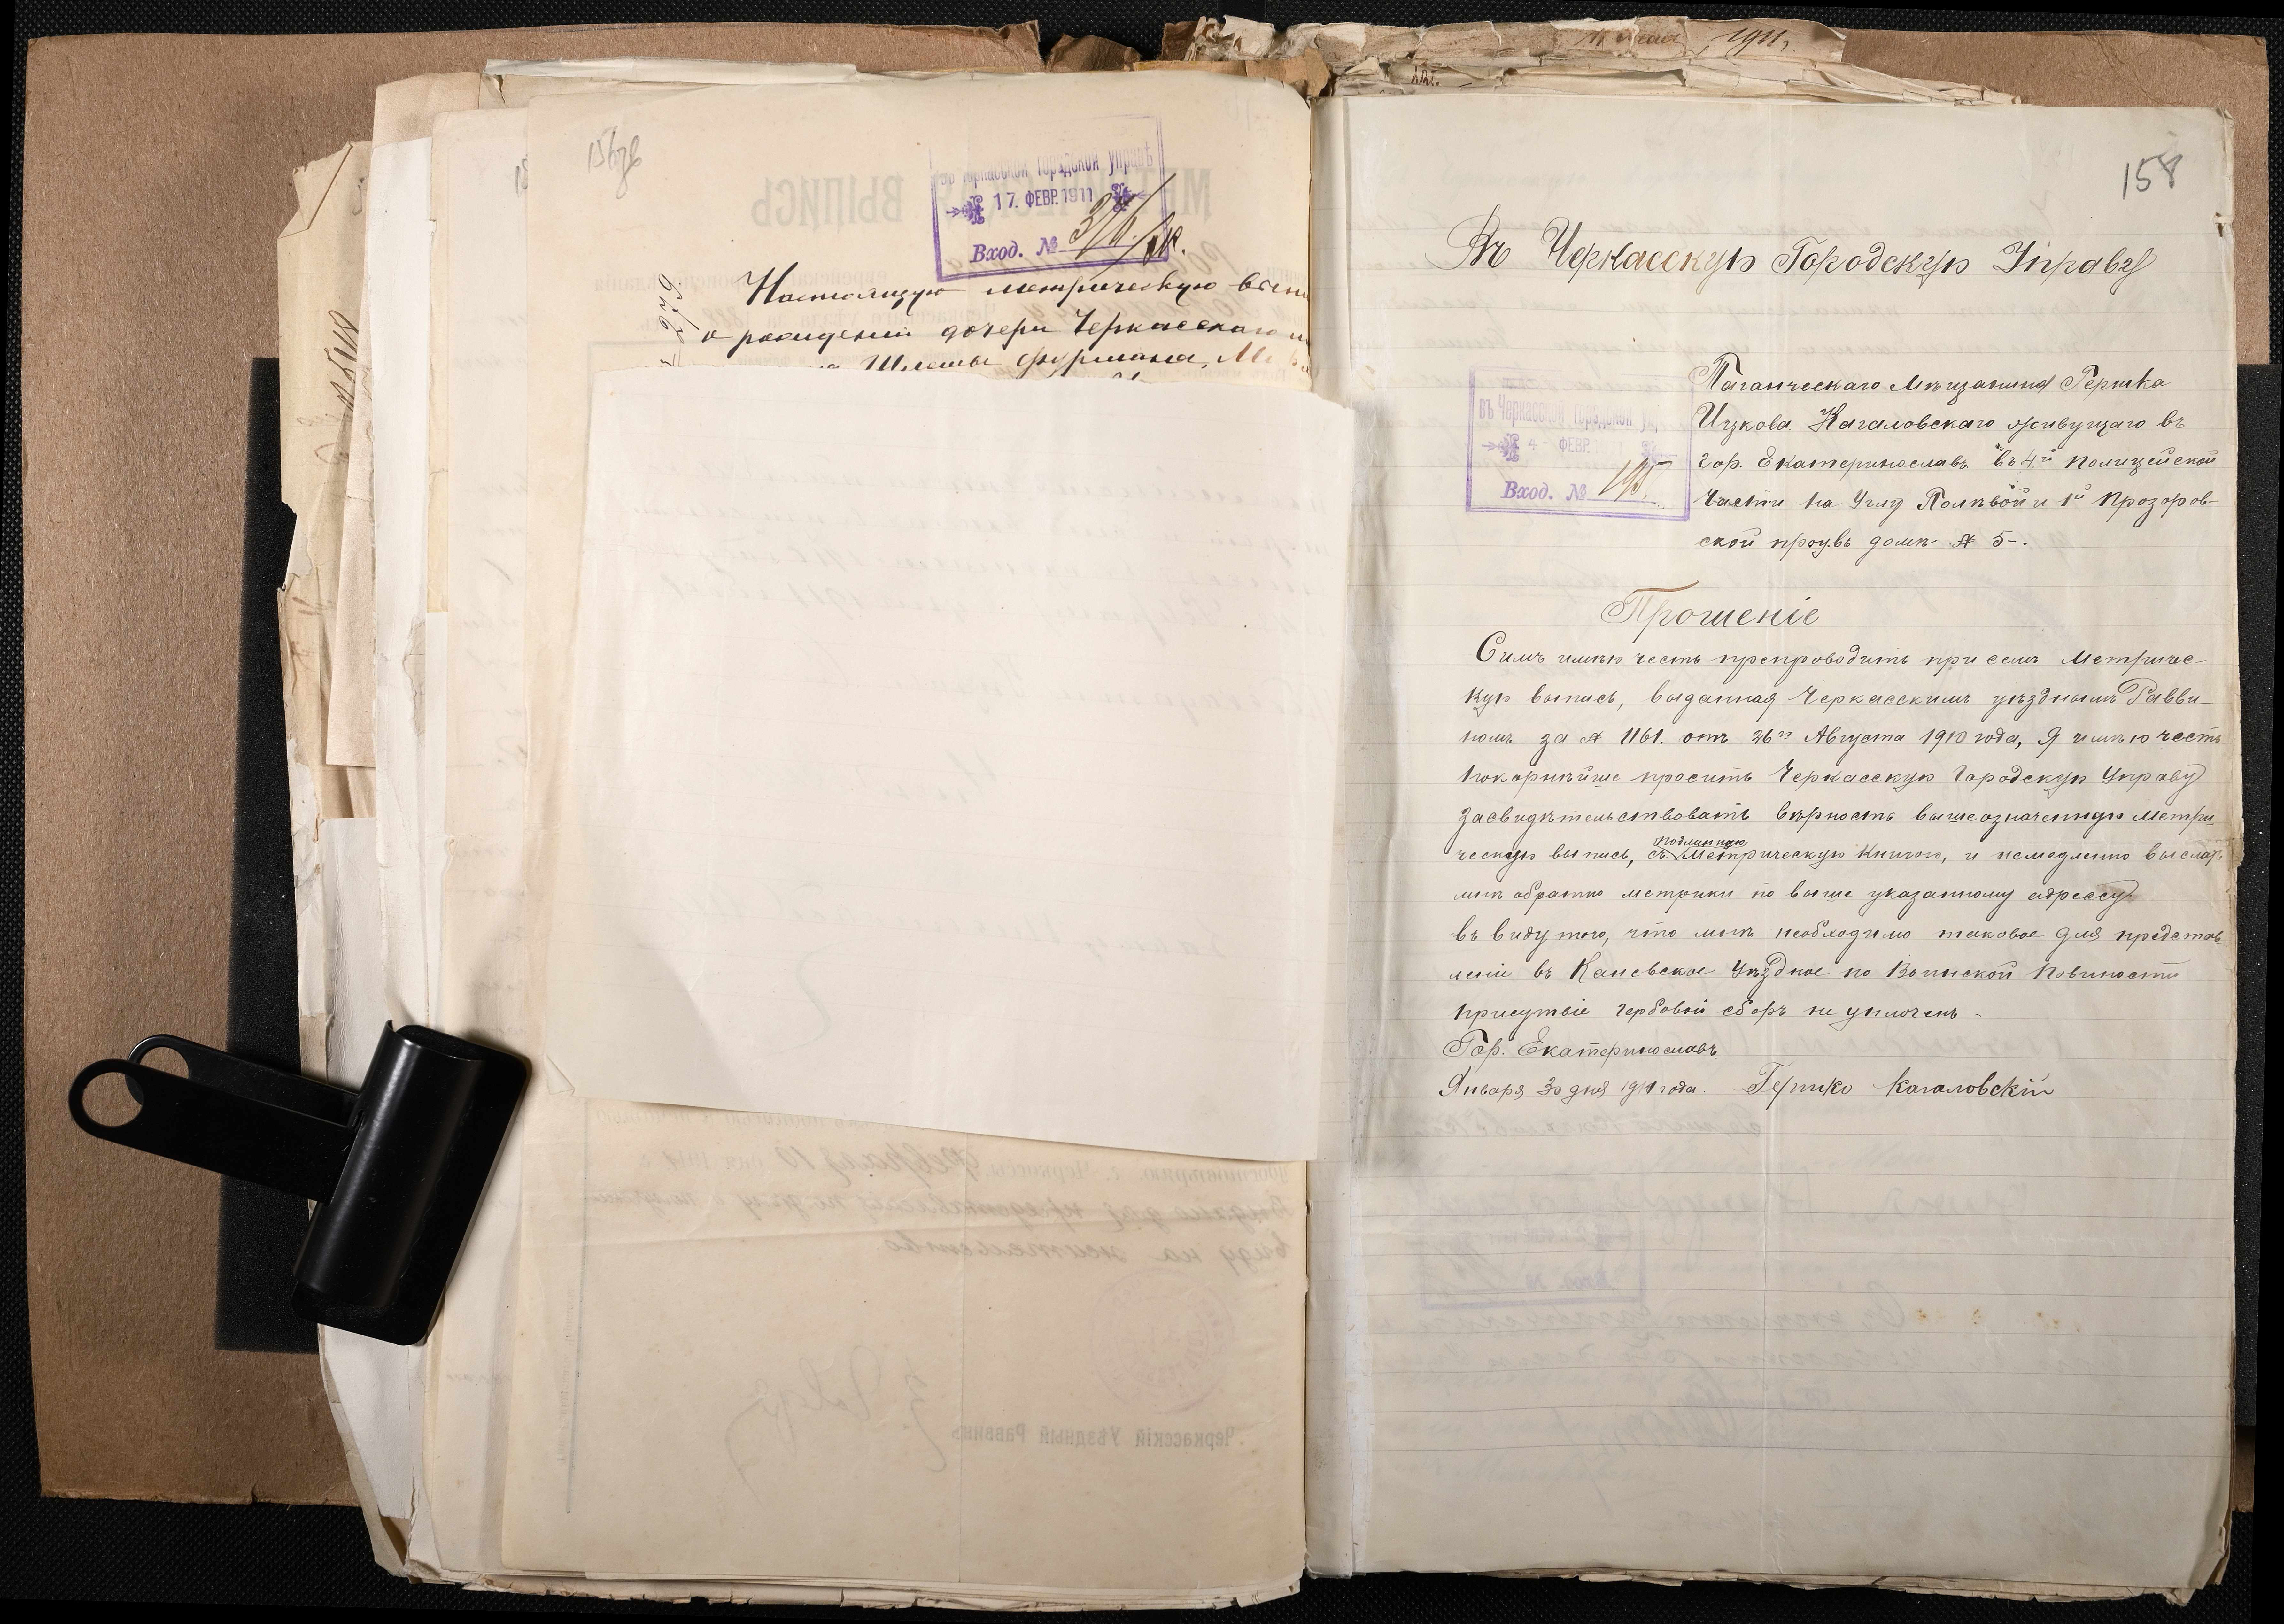 въ Черкасской Городской Управѣ
17. ФЕВР. 1911
Вход. №
Настоящую метрическую
о рожденіи дочери Черкасскаго
Шлемы Фурмана,
158
Въ Черкасскую Городскую Управу
Таганческаго Мѣщанина Гершка
Ицкова Кагаловскаго живущаго въ
гор. Екатеринославѣ въ 4й Полицейской
Части на Углу Полевой и 1й Прозоров-
ской проу. въ домѣ № 5-.
въ Черкасской Городской
4- ФЕВР.
Вход. № 195
Прошеніе
Симъ имѣю честь препроводить при семъ Метричес-
кую выпись, выданная Черкасскимъ уѣзднымъ Равви-
номъ за № 1161. отъ 26го Августа 1910 года, Я имѣю честь
покорнѣйше просить Черкасскую Городскую Управу
засвидѣтельствовать вѣрность вышеозначенную Метри-
ческую выпись, съ подлинную Метрическую Книгою, и немедленно выслать
мнѣ обратно метрики по выше указанному адрессу
въ виду того, что мнѣ необходимо таковое для представ-
леніи въ Каневское Уѣздное по Воинской Повиности
присутвіе гербовой сборъ не уплоченъ-
Гор. Екатеринославъ
Января 30 дня 1911 года. Гершко Кагаловскій